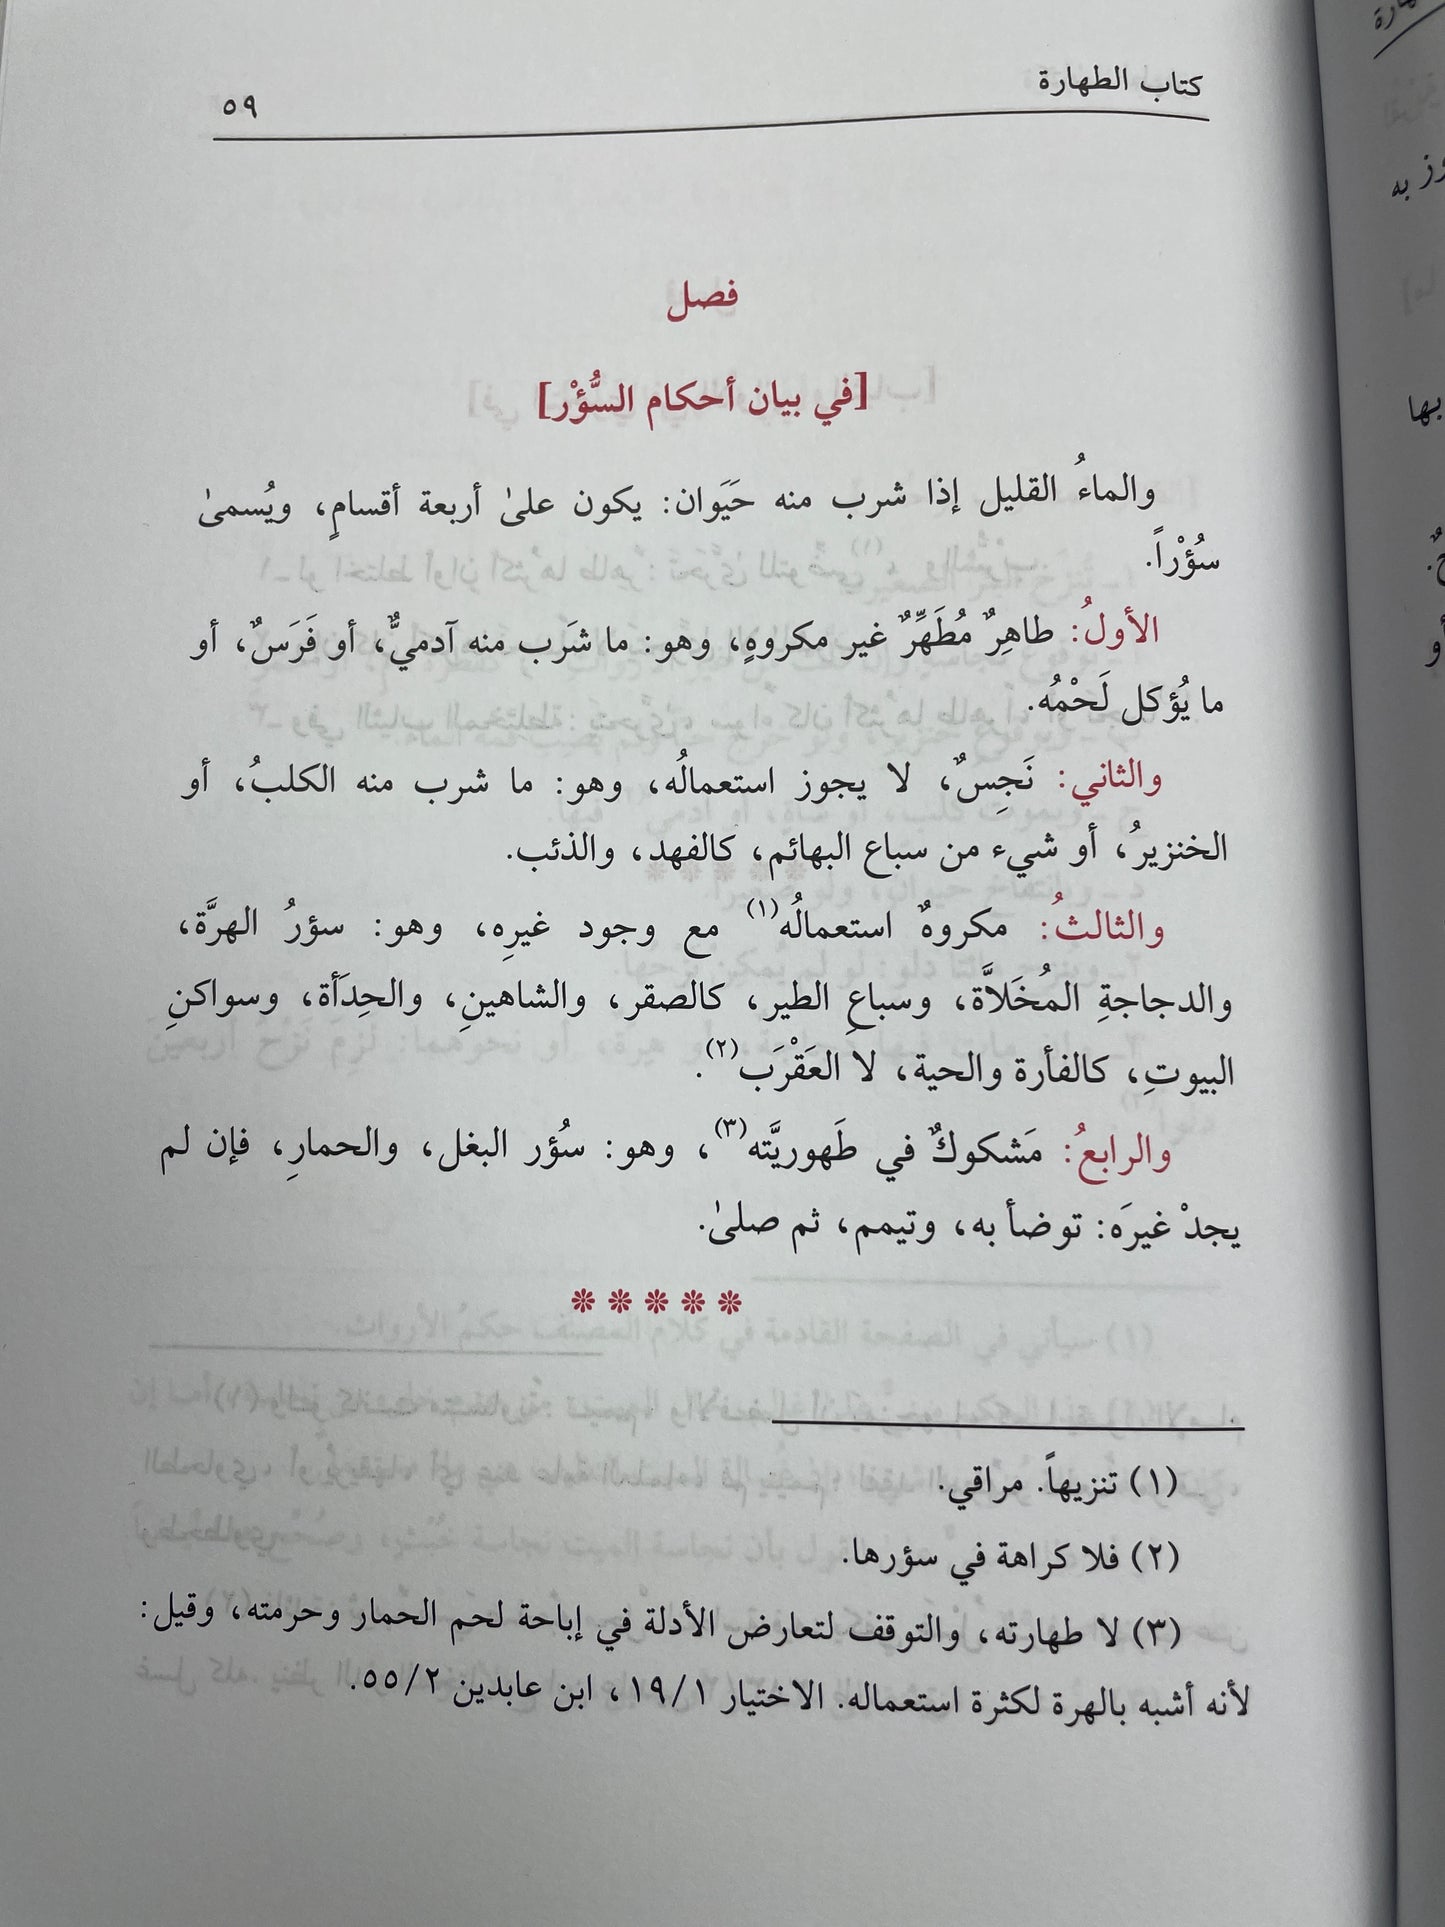 كتاب الطهارة ٥٩
فصل
[في بيان أحكام السُّؤْر]
والماءُ القليل إذا شرب منه حَيَوان: يكون علىٰ أربعة أقسامٍ، ويُسمىٰ
سُؤْراً.
الأولُ: طاهِرٌ مُطَهِّرٌ غير مكروهٍ، وهو: ما شَرَب منه آدميٌّ، أو فَرَسٌ، أو
ما يُؤكل لَحْمُه.
والثاني: نَجِسٌ، لا يجوز استعمالُه، وهو: ما شرب منه الكلبُ، أو
الخنزيرُ، أو شيء من سباع البهائم، كالفهد، والذئب.
والثالثُ: مكروهٌ استعمالُه(١) مع وجود غيرِه، وهو: سؤرُ الهرَّة،
والدجاجةِ المُخَلاَّة، وسباعِ الطير، كالصقر، والشاهينِ، والحِدَأة، وسواكنِ
البيوتِ، كالفأرة والحية، لا العَقْرَب(٢).
والرابعُ: مَشكوكٌ في طَهوريَّته(٣)، وهو: سُؤر البغل، والحمارِ، فإن لم
يجدْ غيرَه: توضأ به، وتيمم، ثم صلىٰ.
❊ ❊ ❊ ❊ ❊
(١) تنزيهاً. مراقي.
(٢) فلا كراهة في سؤرها.
(٣) لا طهارته، والتوقف لتعارض الأدلة في إباحة لحم الحمار وحرمته، وقيل:
لأنه أشبه بالهرة لكثرة استعماله. الاختيار ١٩/١، ابن عابدين ٥٥/٢.
وز به
بها
أو